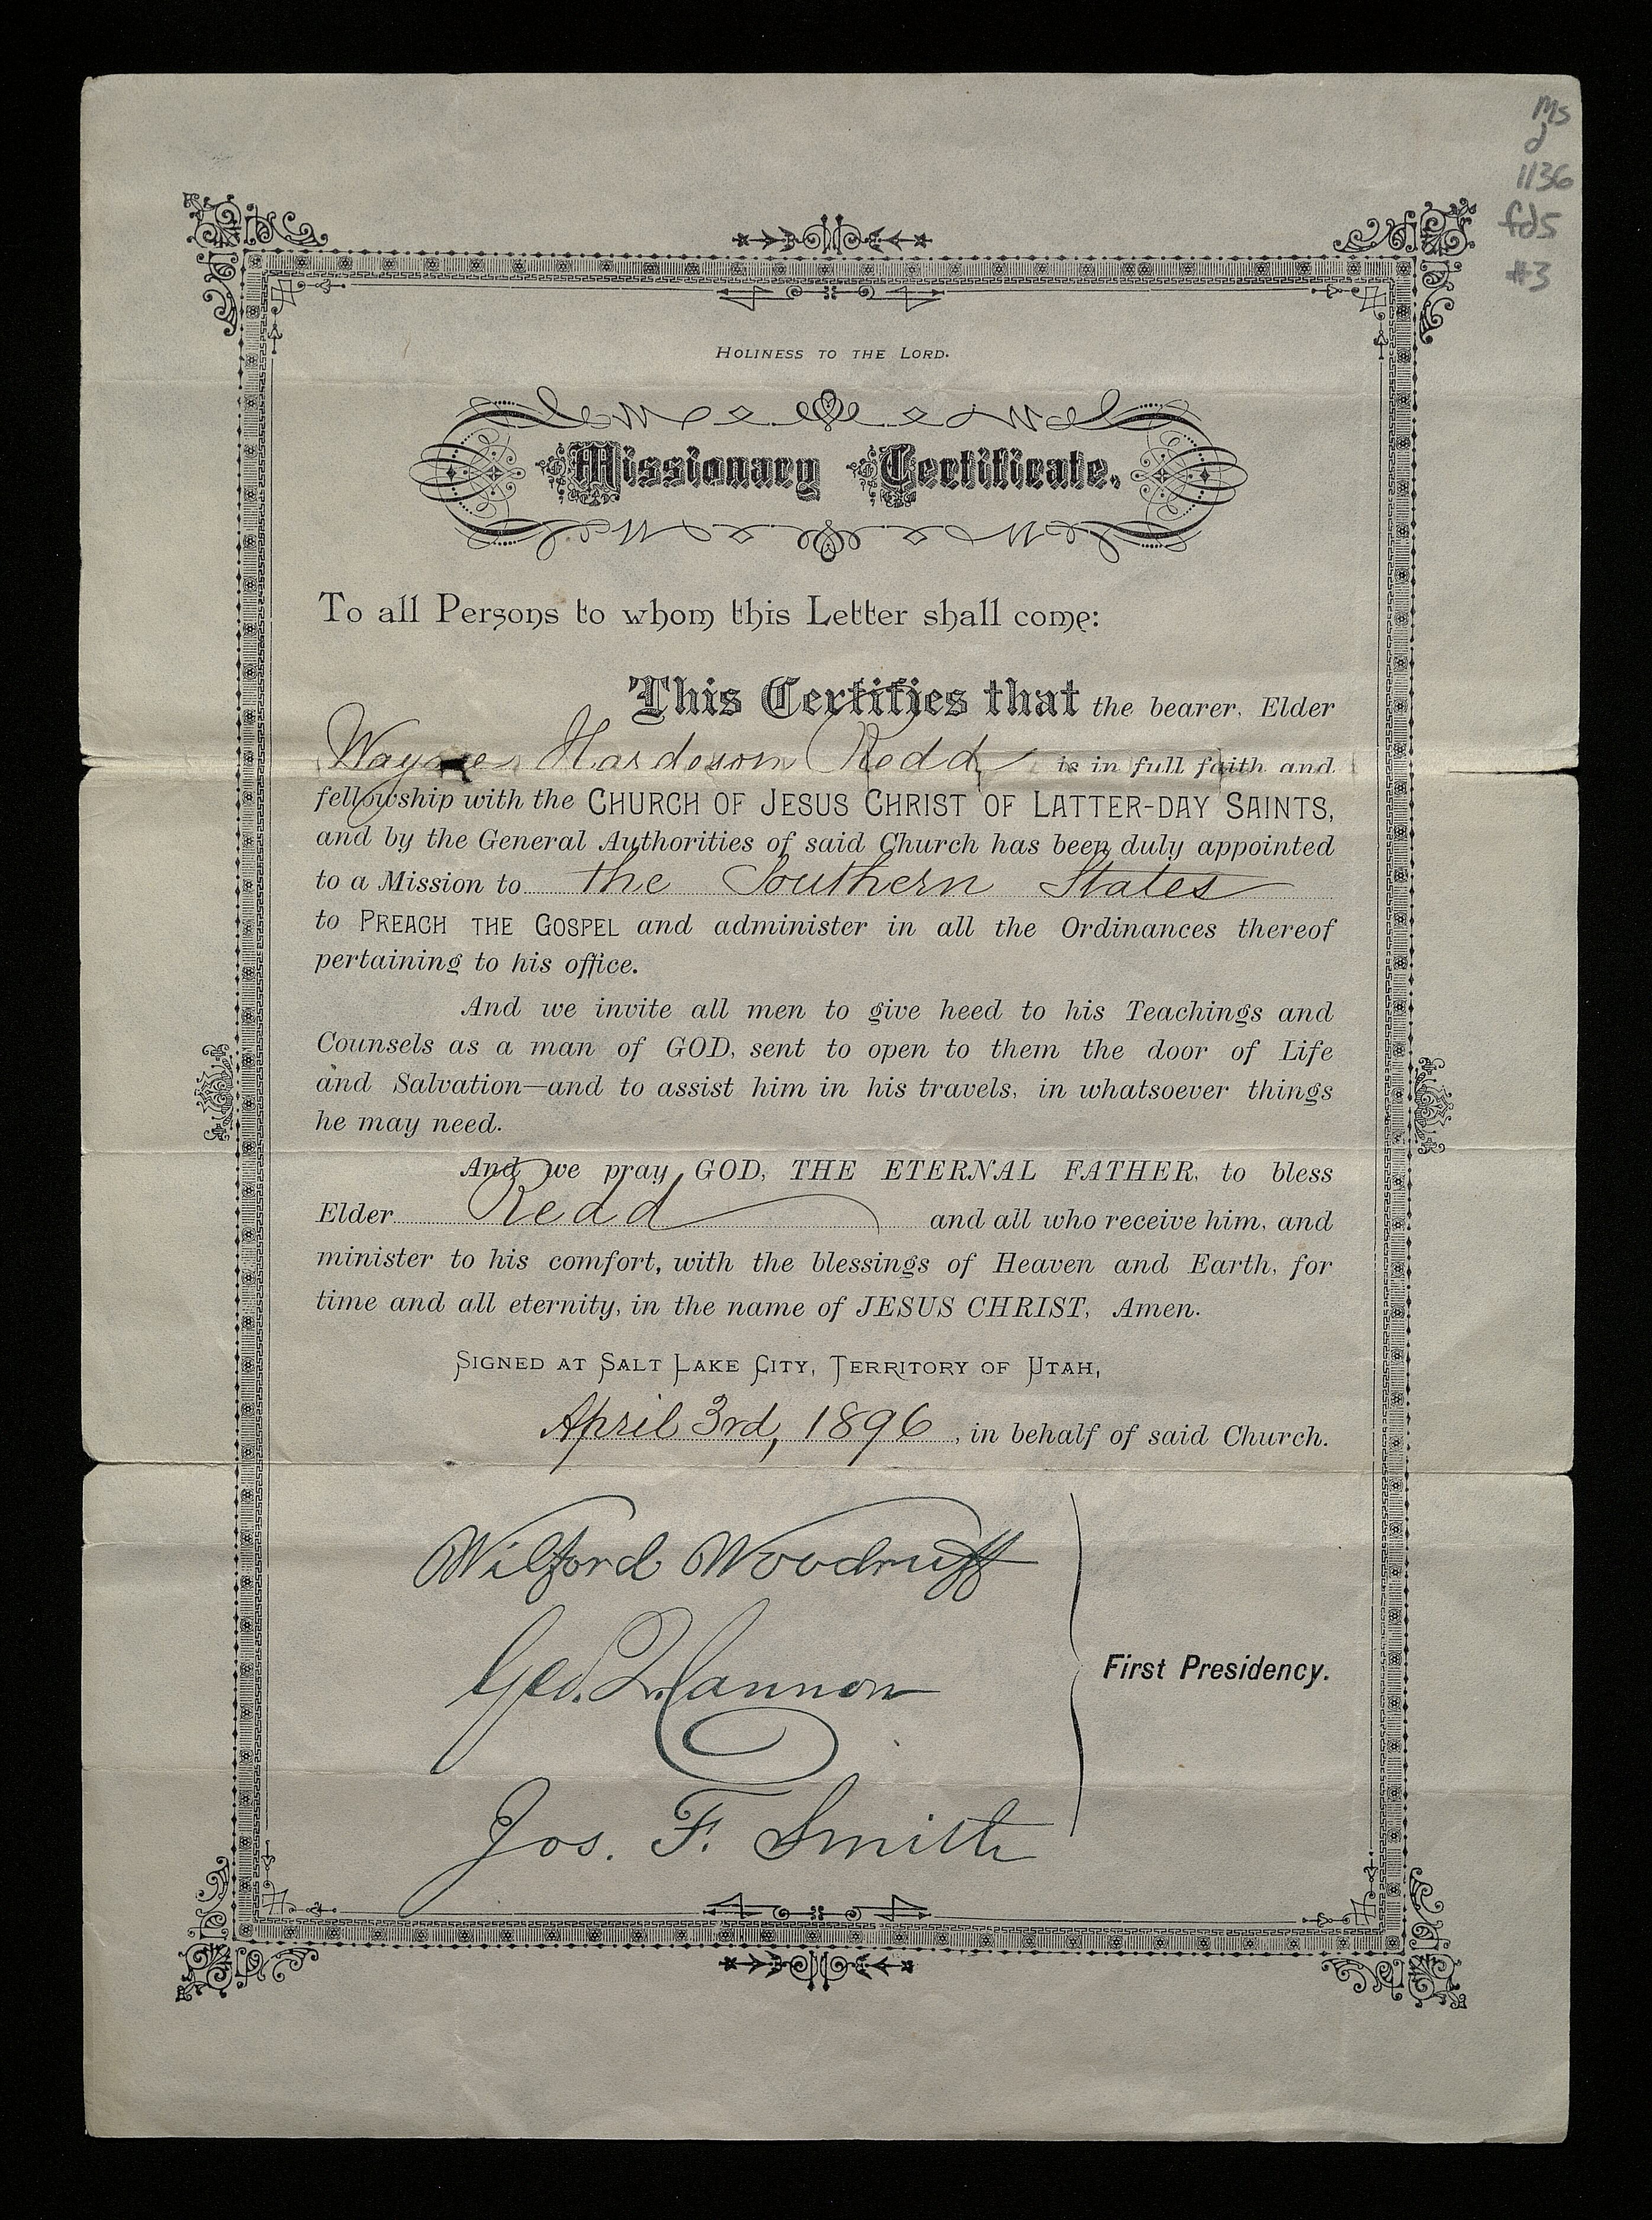 Ms
d
1136
fd5
#3
HOLINESS TO THE LORD.
Missionary Certificate.
To all Persons to whom this Letter shall come:
This Certifies that the bearer, Elder
Wayne Hardeson Redd is in full faith and
fellowship with the CHURCH OF JESUS CHRIST OF LATTER-DAY SAINTS,
and by the General Authorities of said Church has been duly appointed
to a Mission to the Southern States
to PREACH THE GOSPEL and administer in all the Ordinances thereof
pertaining to his office.
And we invite all men to give heed to his Teachings and
Counsels as a man of GOD, sent to open to them the door of Life
and Salvation—and to assist him in his travels, in whatsoever things
he may need.
And we pray GOD, THE ETERNAL FATHER, to bless
Elder Redd and all who receive him, and
minister to his comfort, with the blessings of Heaven and Earth, for
time and all eternity, in the name of JESUS CHRIST, Amen.
SIGNED AT SALT LAKE CITY, TERRITORY OF UTAH,
April 3rd, 1896, in behalf of said Church.
Wilford Woodruff
Geo. Q. Cannon
First Presidency.
Jos. F. Smith